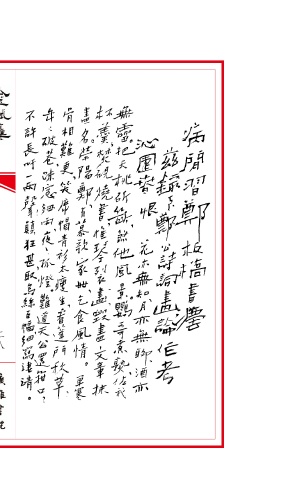 病閒習鄭板橋書
鄭公詩詞書論作考
沁園春 恨 花亦無知月亦無聊酒亦
無靈把夭桃斫斷煞他風景鸚哥煮熟佐我
杯羹焚硯燒書椎琴裂畫毀盡文章抹
盡名滎陽鄭有慕歌家世乞食風情單寒
骨相難更笑席帽青衫太瘦生看蓬門秋草
年々破巷疏窗細雨夜々孤燈難道天公還箝恨口
不許長吁一兩聲顛狂甚取烏絲百幅細寫淒清